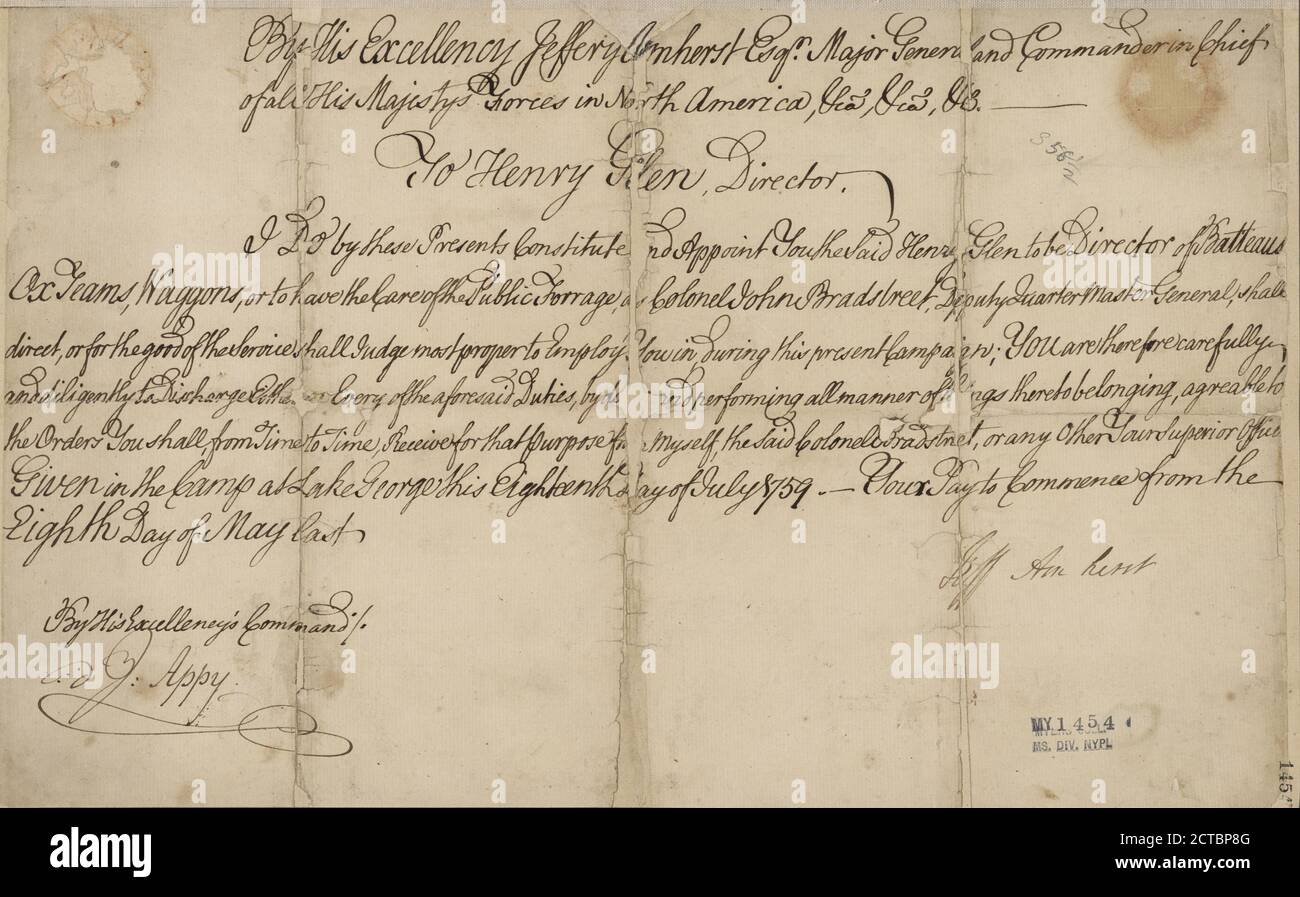 By His Excellency Jeffery Amherst Esqr. Major General and Commander in Chief
of all His Majestys Forces in North America, &ca, &ca, &c.
To Henry Glen, Director.
I Do by these Presents Constitute and Appoint You the Said Henry Glen to be Director of Batteaus
Ox Teams, Waggons, or to have the Care of the Public Forrage, as Colonel John Bradstreet, Deputy Quarter Master General, shall
direct, or for the good of the Service shall Judge most proper to Employ You in, during this present Campaign; You are therefore carefully
and diligently to Discharge Either or Every of the aforesaid Duties, by and performing all manner of things thereto belonging, agreable to
the Orders You shall, from Time to Time, Receive for that purpose from Myself, the Said Colonel Bradstreet, or any Other Your Superior Officer
Given in the Camp at Lake George this Eighteenth Day of July 1759. — Your Pay to Commence from the
Eighth Day of May last
Jeff Amherst
By His Excellency's Command /.
J: Appy.
MY 1454
MYERS COLL.
MS. DIV. NYPL
145
alamy
Image ID: 2CTBP8G
www.alamy.com